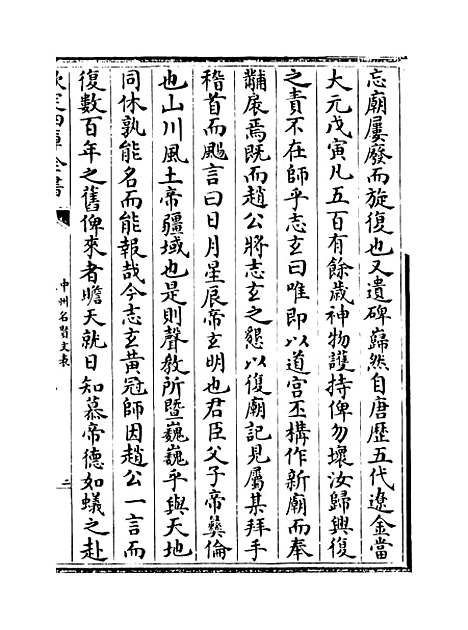 忘廟屢廢而旋復也又遺碑巋然自唐歷五代遼金當
大元戊寅凡五百有餘歲神物護持俾勿壞汝歸興復
之責不在師乎志玄曰唯即以道宫丕構作新廟而奉
黼扆焉既而趙公將志玄之懇以復廟記見屬某拜手
稽首而颺言曰日月星辰帝玄明也君臣父子帝彝倫
也山川風土帝疆域也是則聲教所暨巍巍乎與天地
同休孰能名而能報哉今志玄黄冠師因趙公一言而
復數百年之舊俾來者瞻天就日知慕帝德如蟻之赴
欽定四庫全書
中州名賢文表
二